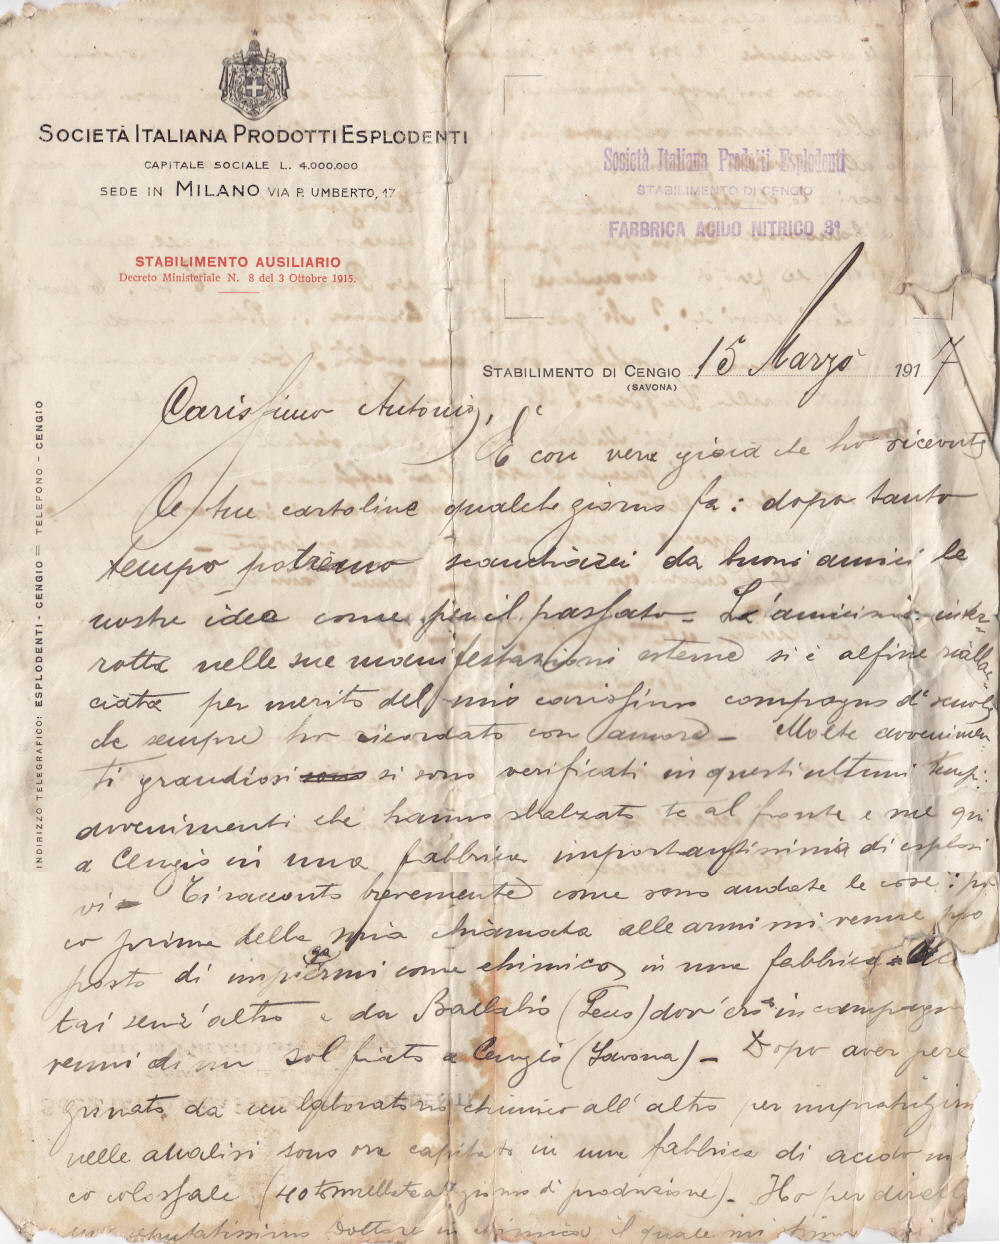 SOCIETÀ ITALIANA PRODOTTI ESPLODENTI
CAPITALE SOCIALE L. 4.000.000
SEDE IN MILANO VIA P. UMBERTO, 17
STABILIMENTO AUSILIARIO
Decreto Ministeriale N. 8 del 3 Ottobre 1915.
Società Italiana Prodotti Esplodenti
STABILIMENTO DI CENGIO
FABBRICA ACIDO NITRICO 3ª
STABILIMENTO DI CENGIO 15 Marzo 1917
(SAVONA)
INDIRIZZO TELEGRAFICO: ESPLODENTI - CENGIO = TELEFONO - CENGIO
Carissimo Antonio,
È con vera gioia che ho ricevuto
le tue cartoline qualche giorno fa: dopo tanto
tempo potremo scambiarci da buoni amici le
nostre idee come per il passato - L'amicizia inter-
rotta nelle sue manifestazioni esterne si è alfine riallac-
ciata per merito del mio carissimo compagno di scuola
che sempre ho ricordato con amore - Molte avvenimen
ti grandiosi si sono verificati in questi ultimi tempi:
avvenimenti che hanno sbalzato te al fronte e me qui
a Cengio in una fabbrica importantissima di esplosi
vi - Ti racconto brevemente come sono andate le cose: po
co prima della mia chiamata alle armi mi venne pro
posto di impiegarmi come chimico in una fabbrica
tai senz'altro e da Ballabio (Lecco) dov'ero in campagna
venni di un sol fiato a Cengio (Savona) - Dopo aver pere
grinato da un laboratorio chimico all'altro per impratichirmi
nelle analisi sono ora capitato in una fabbrica di acido nit
co colossale (40 tonnellate al giorno di produzione) - Ho per
un Dottore in chimica il quale mi